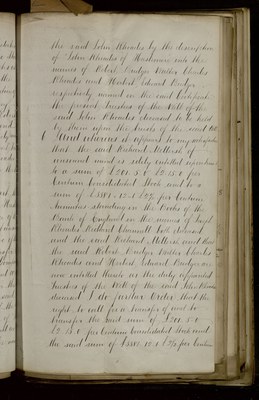 the said John Rhoades by the description
of John Rhoades of Hackman into the
names of Robert Bridges Walter Charles
Rhoades and Herbert Edward Bridges
respectively named in the said
the present Trustees of the Will of the
said John Rhoades deceased to be held
by them upon the trusts of the said Will
And whereas it appears to my satisfaction
that the said Richard Mellersh by
unsound mind is solely entitled
to a sum of £201. 5. 0 £2. 15. 0 per
Centum Consolidated Stock and to a
sum of per Centum
Annuities standing in the Books of the
Bank of England in the names of
Rhoades Richard both deceased
and the said Richard Mellersh and that
the said Robert Bridges Walter Charles
Rhoades and Herbert Edward Bridges are
now entitled thereto as the duly appointed
Trustees of the Will of the said John Rhoades
deceased I do further Order that the
right to call for a transfer of and to
transfer the said sum of £201. 5. 0
£2. 15. 0 per Centum Consolidated Stock and
the said sum of per Centum